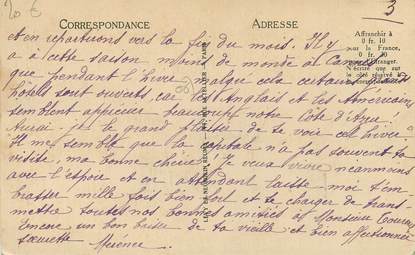 20 €
3
CORRESPONDANCE
ADRESSE
Affranchir à
0 fr. 10
pour la France,
0 fr. 10
et en repartirons vers la fin du mois. Il y
a à cette saison moins de monde à Cannes
que pendant l'hiver malgré cela certains
hôtels sont ouverts, car les Anglais et les Américains
semblent apprécier beaucoup notre Côte d'Azur!
Aurai-je le grand plaisir de te voir cet hiver.
Il me semble que la capitale n'a pas souvent ta
visite, ma bonne chérie! Je veux vivre néanmoins
avec l'espoir et en attendant laisse moi t'em
brasser mille fois bien fort et te charger de trans-
mettre toutes nos bonnes amitiés à Monsieur
Encore un bon baiser de ta vieille et bien affectionnée